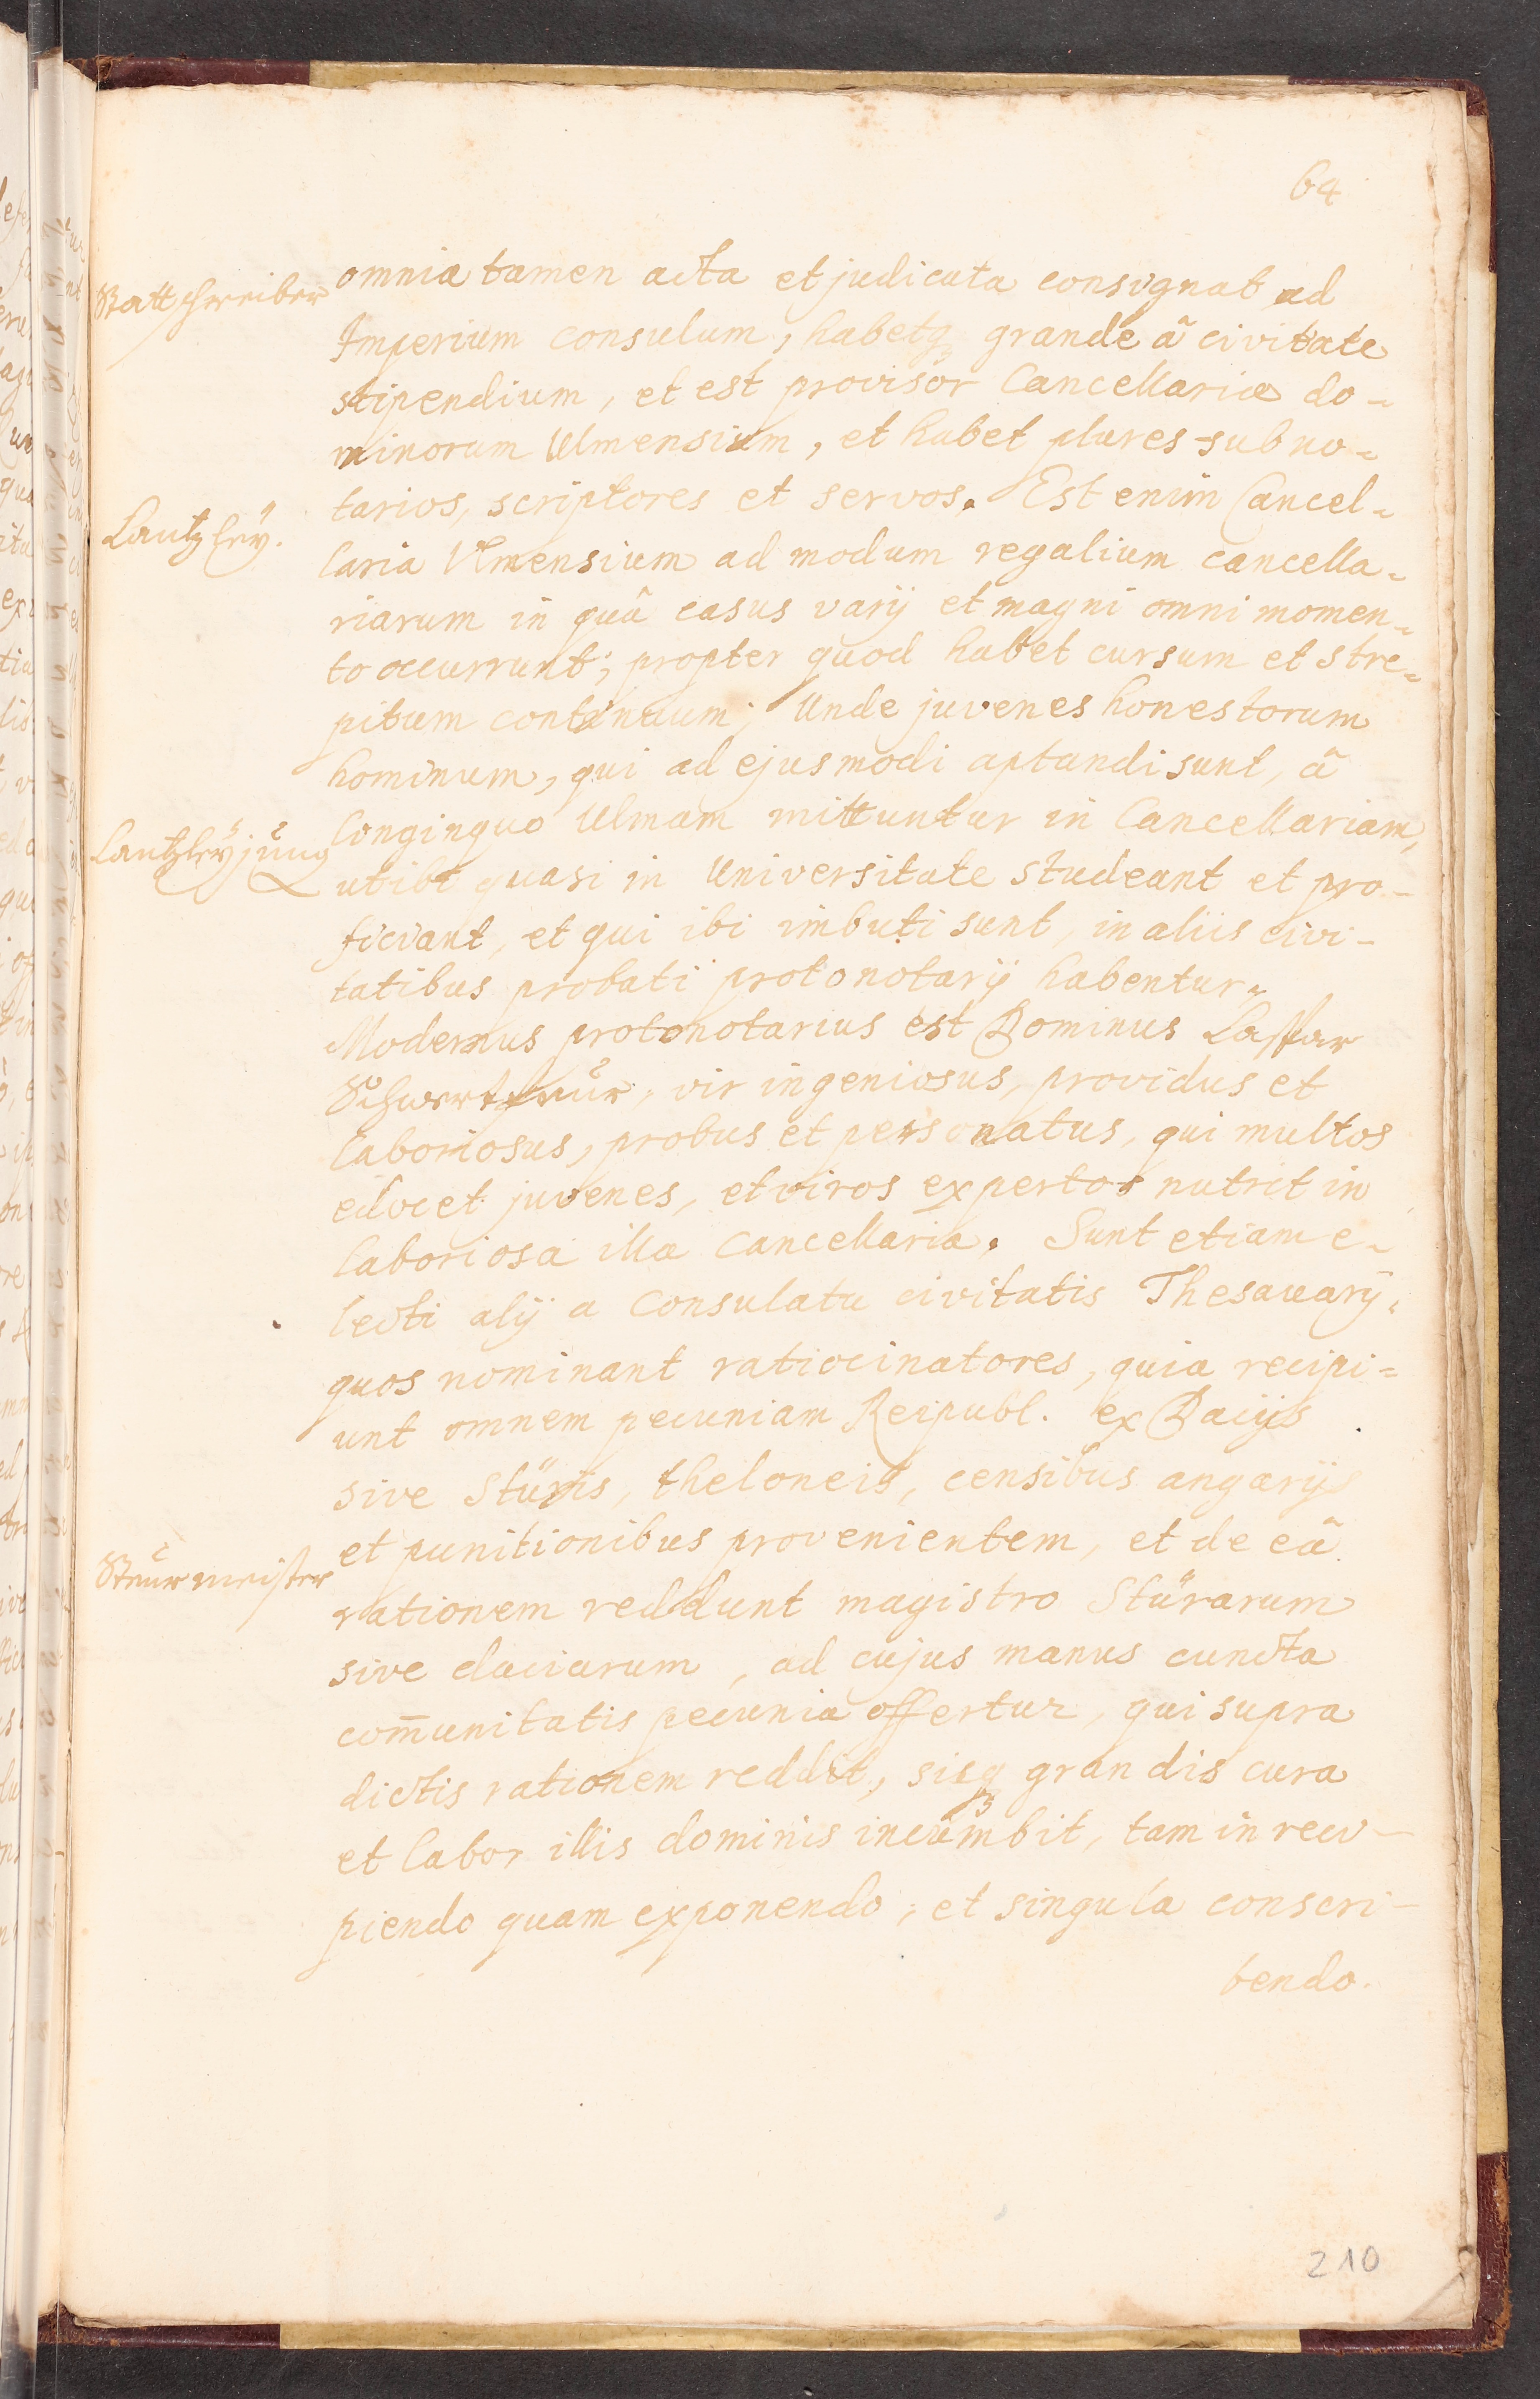 64
Statt schreiber
omnia tamen acta et judicata consignat ad
Imperium consulum, habetq₃ grande â civitate
stipendium, et est provisor Cancellariæ do-
minorum Ulmensium, et habet plures subno-
tarios, scriptores et servos. Est enim Cancel-
Cantzley.
laria Ulmensium ad modum regalium cancella-
riarum in quâ casus varij et magni omni momen-
to occurrunt; propter quod habet cursum et stre-
pitum continuum; Unde juvenes honestorum
hominum, qui ad ejusmodi aptandi sunt, â
Cantzleyjung
longinquo Ulmam mittuntur in Cancellariam,
ut ibi quasi in Universitate studeant et pro-
ficiant, et qui ibi imbuti sunt, in aliis civi-
tatibus probati protonotarij habentur.
Modernus protonotarius est Dominus Caspar
vir ingeniosus, providus et
laboriosus, probus et personatus, qui multos
edocet juvenes, et viros expertos nutrit in
laboriosa illa Cancellaria. Sunt etiam e-
lecti alij a Consulatu civitatis Thesaurarij,
quos nominant ratiocinatores, quia recipi=
unt omnem pecuniam Reipubl. ex Dacijs
sive Stüris, theloneis, censibus angarijs
et punitionibus provenientem, et de eâ
Steurmeister
rationem reddunt magistro Stürarum
sive daciarum, ad cujus manus cuncta
com̄unitatis pecunia offertur, qui supra
dictis rationem reddit, sicq₃ grandis cura
et labor illis dominis incumbit, tam in reci-
piendo quam exponendo, et singula conscri-
bendo.
210